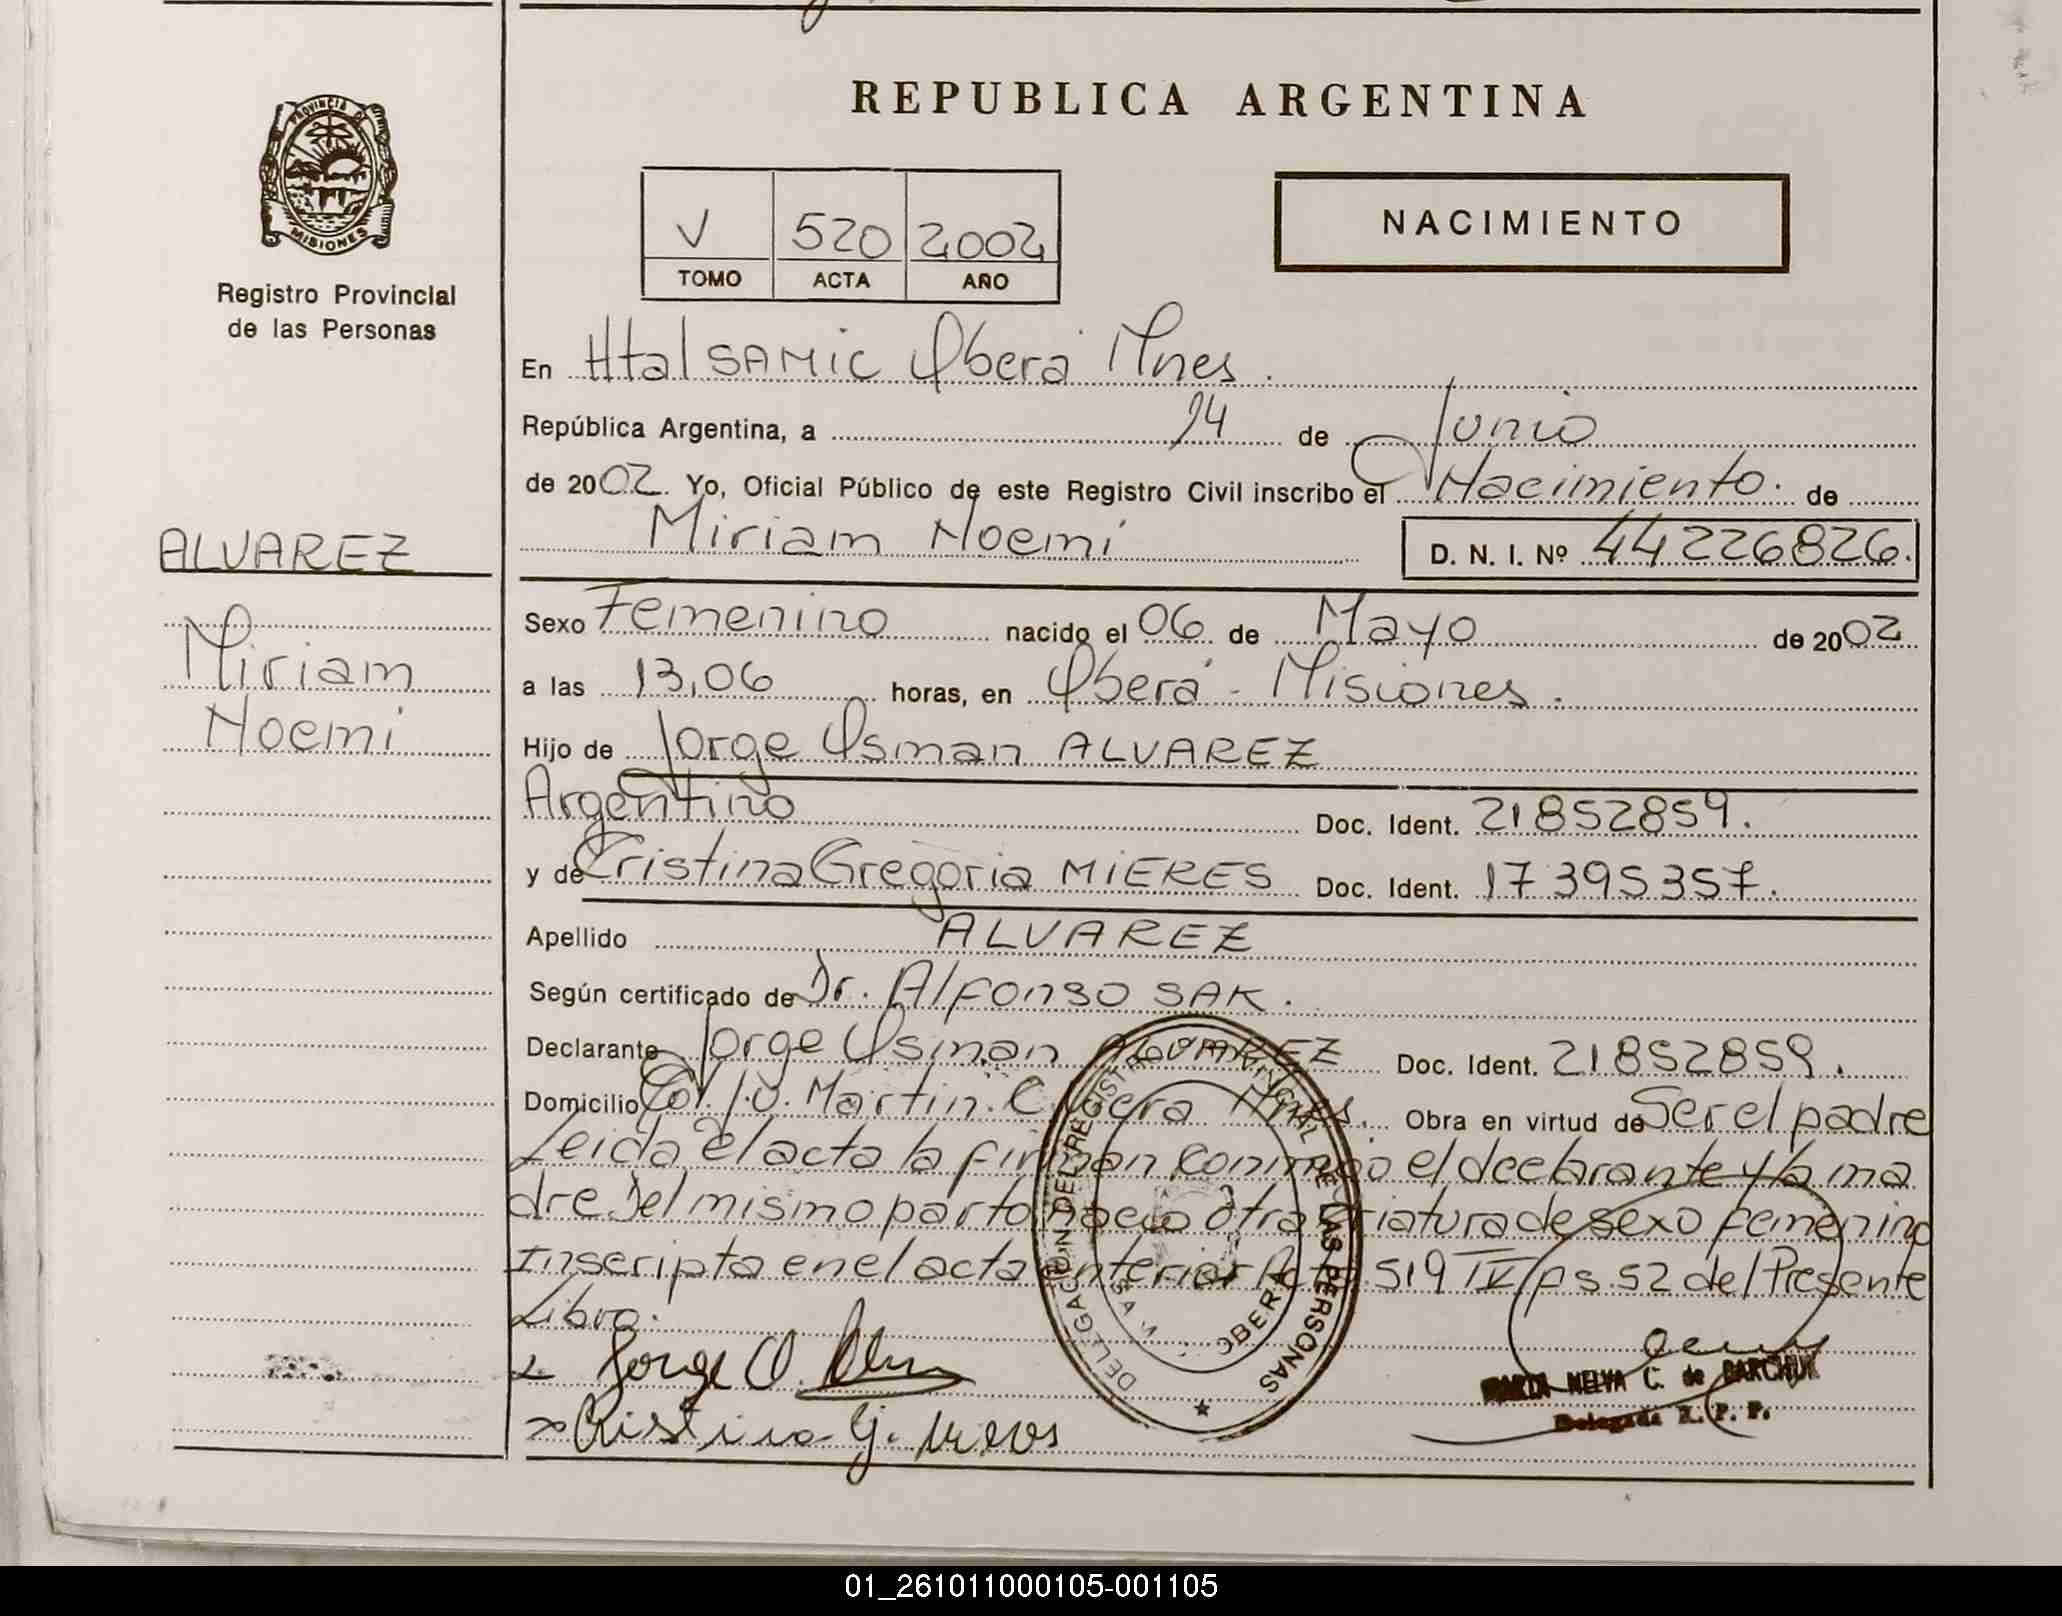 REPUBLICA ARGENTINA
PROVINCIA DE
MISIONES
Registro Provincial
de las Personas
V 520 2002
TOMO ACTA AÑO
NACIMIENTO
En Htal SAMIC Oberá Mnes.
República Argentina, a 14 de Junio
de 2002. Yo, Oficial Público de este Registro Civil inscribo el Nacimiento. de
Miriam Noemi D. N. I. Nº 44226826.
ALVAREZ
Miriam
Noemi
Sexo Femenino nacido el 06 de Mayo de 2002
a las 13,06 horas, en Oberá - Misiones.
Hijo de Jorge Osman ALVAREZ
Argentino Doc. Ident. 21852859.
y de Cristina Gregoria MIERES Doc. Ident. 17395357.
Apellido ALVAREZ
Según certificado de Dr. Alfonso SAK.
Declarante Jorge Osman ALVAREZ Doc. Ident. 21852859.
Domicilio Col. J.V. Martin. C. Obera Mnes. Obra en virtud de Ser el padre
Leida el acta la firman conmigo el declarante y la ma
dre Del mismo parto nacio otra criatura de sexo femenino
Inscripta en el acta anterior 519 IV ps. 52 del Presente
Libro.
Jorge O.
Cristina G. Mieres
DELEGACION DEL REGISTRO PROVINCIAL DE LAS PERSONAS
OBERA
MARIA NELVA C. de BARCHUK
Delegada R. P. P.
01_261011000105-001105